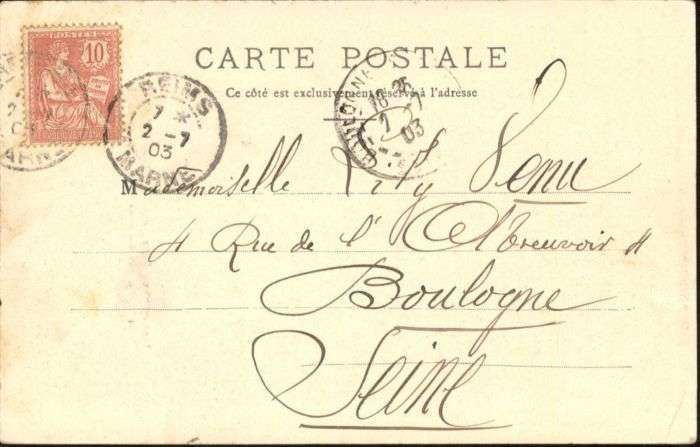 POSTES
10
CARTE POSTALE
Ce côté est exclusivement réservé à l'adresse
REIMS
7
2-7
03
MARNE
BOULOGNE
18 25
2-7
03
Mademoiselle Lily Venu
4 Rue de l'Abreuvoir 4
Boulogne
Seine